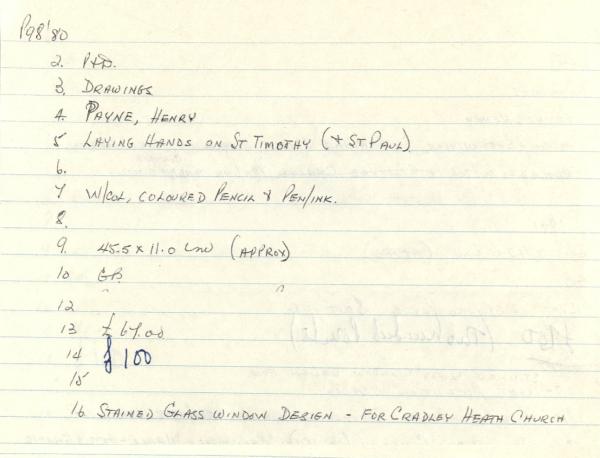 P98'80
2. P+D.
3. DRAWINGS
4. PAYNE, HENRY
5 LAYING HANDS ON ST TIMOTHY (+ ST PAUL)
6.
7 W/COL, COLOURED PENCIL & PEN/INK.
8.
9. 45.5 x 11.0 (APPROX)
10 GB.
12
13 £67.00
14 £100
15
16 STAINED GLASS WINDOW DESIGN - FOR CRADLEY HEATH CHURCH